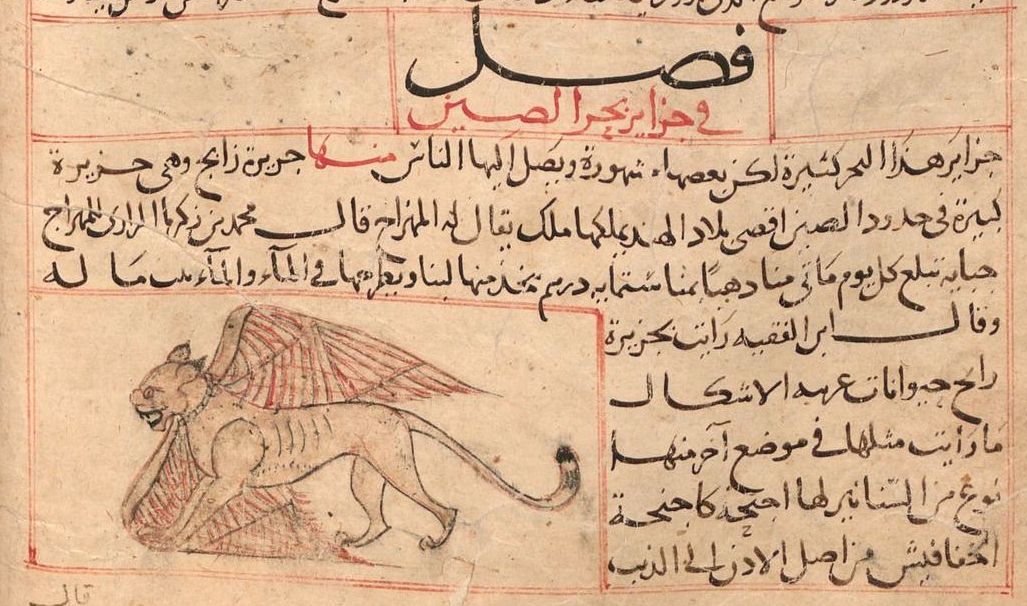 فصل
في جزاير بحر الصين
جزاير هذا البحر كثيرة لكن بعضها مشهورة ويصل اليها الناس منها جزيرة زابج وهي جزيرة
كبيرة في حدود الصين اقصى بلاد الهند يملكها ملك يقال له المهراج قال محمد بن زكريا الرازي للمهراج
جباية تبلغ كل يوم مأتي منا ذهبا بمنا ستمايه درهم يتخذ منها لبنا ويطرحها في المآء والمآء بيت ماله
وقال ابن الفقيه رايت بجزيرة
رابح حيوانات غريبه الاشكال
ما رايت مثلها في موضع آخر منها
نوع من السنانير لها اجنحة كاجنحة
الخفافيش من اصل الاذن الى الذنب
قال